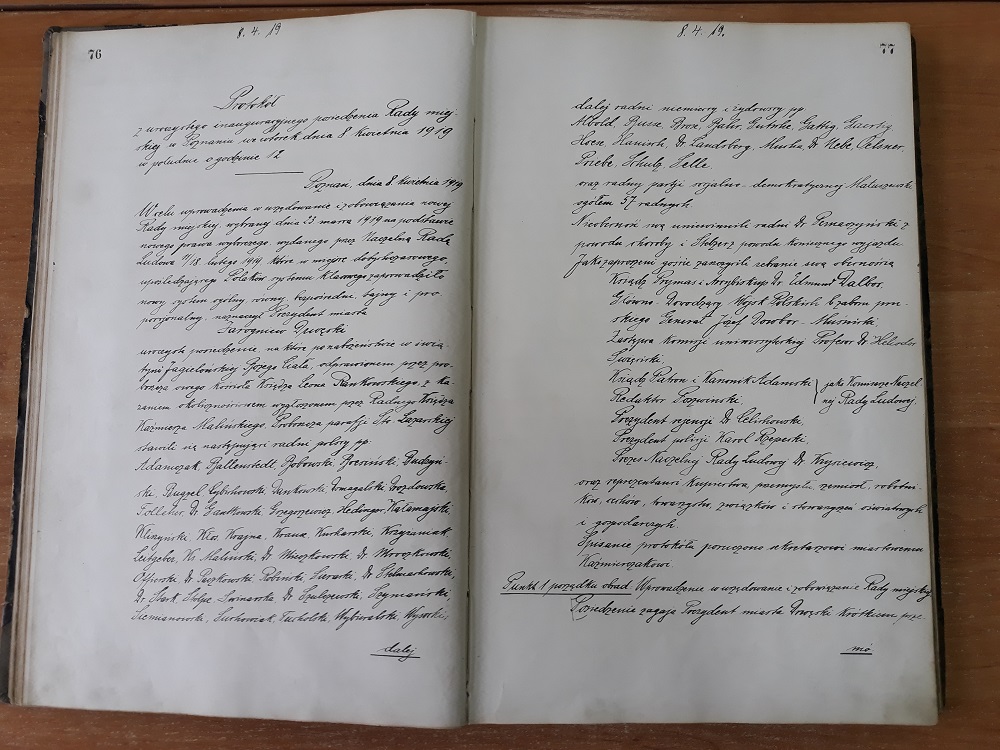 76
8. 4. 19
Protokół
z uroczystego inauguracyjnego posiedzenia Rady miej-
skiej w Poznaniu we wtorek dnia 8 kwietnia 1919
w południe o godzinie 12
Poznań, dnia 8. kwietnia 1919
W celu wprowadzenia w urzędowanie i zobowiązania nowej
Rady miejskiej, wybranej dnia 23 marca 1919 na podstawie
nowego prawa wyborczego wydanego przez Naczelną Radę
Ludową 11/18 lutego 1919, które w miejsce dotychczasowego,
upośledzającego Polaków systemu klasowego zaprowadziło
nowy system ogólny, równy, bezpośredni, tajny i pro-
porcjonalny, naznaczył Prezydent miasta
Jarogniew Drwęski
uroczyste posiedzenie, na które po nabożeństwie w świą-
tyni Jagielońskiej Bożego Ciała, odprawionem przez pro-
boszcza owego kościoła Księdza Leona Rankowskiego, z ka-
zaniem okolicznościowem wygłoszonem przez Radnego Księdza
Kazimierza Malińskiego, Proboszcza parafji Sto Łazarskiej
stawili się następujący radni polscy pp.
Adamczak, Ballenstedt, Bobowski, Bresiński, Budzyń-
ski, Bugzel, Cybichowski, Dankowski, Domagalski, Drozdowska,
Dr. Gantkowski, Gregorowicz, Hedinger, Kałamajski,
Kliczyński, Kłos, Krajna, Krause, Kucharski,
Leitgeber, Ks. Maliński, Dr. Mieczkowski, Dr. Mroczkowski,
Dr. Paczkowski, Robiński, Dr. Stelmachowski,
Dr. Stark, Stolpe, Świnarska, Dr. Szulczewski, Szymański,
Siemianowski, Suchowiak, Tucholski, Wybieralski, Wysocki,
dalej
77
8. 4. 19.
dalej radni niemieccy i żydowscy pp.
Gutsche, Gattig,
Hoen, Hanisch, Dr. Landsberg, Dr.
Priebe, Schulz, Selle.
oraz radny partji socjalno-demokratycznej Matuszewski
ogółem 57 radnych.
Nieobecność swą uniewinnili radni Dr. z
powodu choroby i Stelzer z powodu koniecznego wyjazdu.
Jako zaproszeni goście zaszczycili zebranie swą obecnością
Ksiądz Prymas i Arcybiskup Dr. Edmund Dalbor.
Główno-Dowodzący Wojsk Polskich b. zaboru pru-
skiego Generał Józef Dowbor-Muśnicki.
Zastępca komisji uniwersyteckiej Profesor Dr. Heliodor
Święcicki.
Ksiądz Patron i Kanonik Adamski
Redaktor Poszwiński
jako Komisarze Naczel-
nej Rady Ludowej.
Prezydent rejencji Dr. Celichowski.
Prezydent policji Karol Rzepecki.
Prezes Naczelnej Rady Ludowej Dr. Krysiewicz,
oraz reprezentanci kupiectwa, przemysłu, rzemiosł, robotni-
ków, cechów, towarzystw, związków i stowarzyszeń oświatowych
i gospodarczych.
Spisanie protokółu poruczono sekretarzowi miastowemu
Kaźmierczakowi.
Punkt 1 porządku obrad. Wprowadzenie w urzędowanie i zobowiązanie Rady miejskiej
Posiedzenie zagaja Prezydent miasta Drwęski krótkiem prze-
mó